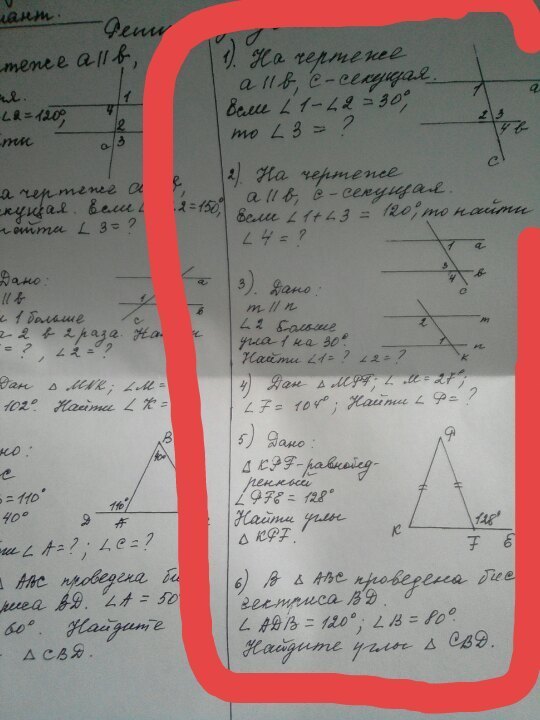 иант.
Реши
ртеже a || b,
ая.
∠2 = 120°,
йти
1
4
2
a
3
на чертеже a
екущая. Если ∠
2 = 150°,
найти ∠3 = ?
Дано:
|| b
л 1 больше
а 2 в 2 раза. Найти
= ?, ∠2 = ?
a
1
b
c
Дан △ МКК; ∠М =
102°. Найти ∠К =
но:
= 110°
40°
йти ∠A = ?; ∠C = ?
B
40°
110°
D
A
△ ABC проведена би
триса BD. ∠A = 50°
60°. Найдите
△ CBD.
1). На чертеже
a || b, c - секущая.
Если ∠1 - ∠2 = 30°,
то ∠3 = ?
1
a
2 3
4 b
c
2). На чертеже
a || b, c - секущая.
Если ∠1 + ∠3 = 120°, то найти
∠4 = ?
1
a
3
b
4
c
3) Дано:
m || n
∠2 больше
угла 1 на 30°.
Найти ∠1 = ? ∠2 = ?
2
m
1
n
к
4) Дан △ MPF; ∠M = 27°,
∠F = 104°; Найти ∠P = ?
5) Дано:
△ KPF - равнобед-
ренный
∠PFE = 128°
Найти углы
△ KPF.
P
K
128°
F
E
6) В △ ABC проведена бис
сектриса BD.
∠ADB = 120°; ∠B = 80°.
Найдите углы △ CBD.